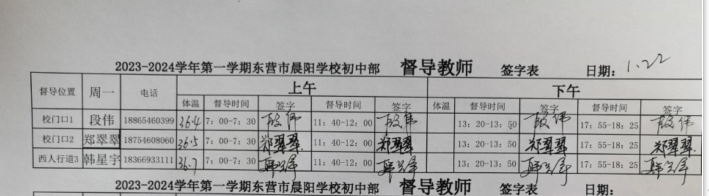 2023-2024学年第一学期东营市晨阳学校初中部 督导教师 签字表 日期: 1.22
督导位置 周一 电话 上午 下午
体温 督导时间 签字 督导时间 签字 督导时间 签字 督导时间 签字
校门口1 段伟 18865460399 36.4 7: 00-7: 30 段伟 11: 40-12: 00 段伟 13: 20-13: 50 段伟 17: 55-18: 25 段伟
校门口2 郑翠翠 18754608060 36.5 7: 00-7: 30 郑翠翠 11: 40-12: 00 郑翠翠 13: 20-13: 50 郑翠翠 17: 55-18: 25 郑翠翠
西人行道3 韩星宇 18366933111 36.7 7: 00-7: 30 韩星宇 11: 40-12: 00 韩星宇 13: 20-13: 50 韩星宇 17: 55-18: 25 韩星宇
2023-2024学年第一学期东营市晨阳学校初中部 督导教师 签字表 日期: